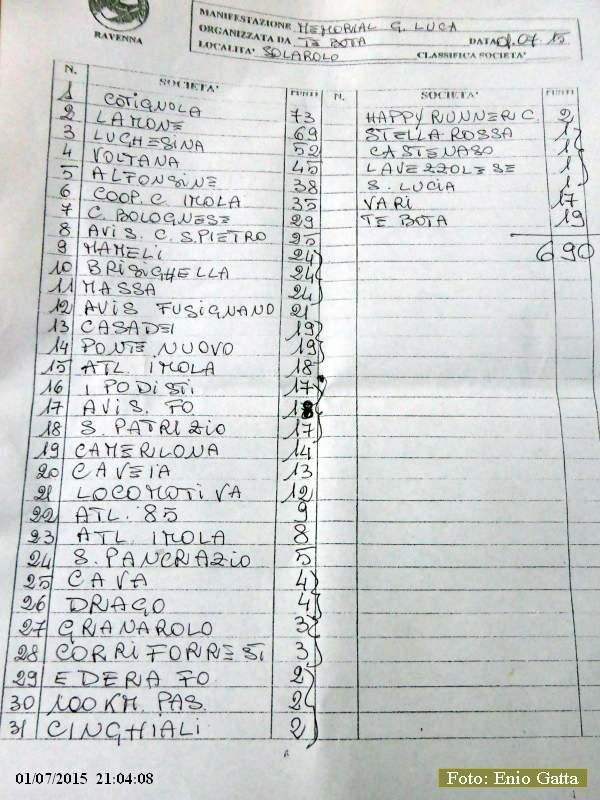 RAVENNA
MANIFESTAZIONE MEMORIAL G. LUCA
ORGANIZZATA DA TE BOTA DATA 01.07.15
LOCALITA' SOLAROLO CLASSIFICA SOCIETA'
N. SOCIETA' PUNTI N. SOCIETA' PUNTI
1 COTIGNOLA 73
2 LAMONE 69
3 LUGHESINA 52
4 VOLTANA 45
5 ALFONSINE 38
6 COOP. C. IMOLA 35
7 C. BOLOGNESE 29
8 AVIS C. S. PIETRO 25
9 MAMELI 24
10 BRISIGHELLA 24
11 MASSA 24
12 AVIS FUSIGNANO 21
13 CASADEI 19
14 PONTE NUOVO 19
15 ATL. IMOLA 18
16 I PODISTI 17
17 AVIS. FO
18 S. PATRIZIO 17
19 CAMERLONA 14
20 CAVEIA 13
21 LOCOMOTIVA 12
22 ATL. 85 9
23 ATL. IMOLA 8
24 S. PANCRAZIO 5
25 CAVA 4
26 DRAGO 4
27 GRANAROLO 3
28 CORRIFORREST 3
29 EDERA FO 2
30 100 KM. PAS. 2
31 CINGHIALI 2
HAPPY RUNNER C. 2
STELLA ROSSA 1
CASTENASO 1
LAVEZZOLESE 1
S. LUCIA 1
VARI 17
TE BOTA 19
690
01/07/2015 21:04:08
Foto: Enio Gatta